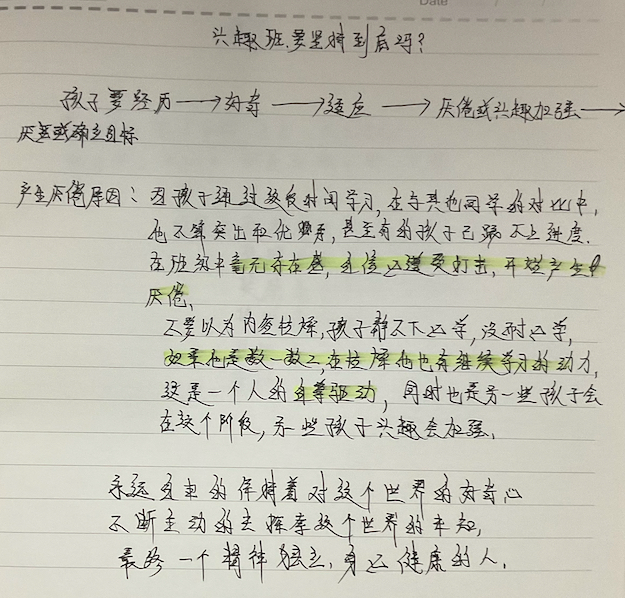 Date
兴趣班要坚持到底吗?
孩子要经历→好奇→适应→厌倦或兴趣加强→
厌恶或确立目标
产生厌倦原因:因孩子通过较长时间学习,在与其他同学的对比中,
他不算突出和优秀,甚至有的孩子已跟不上进度.
在班级中毫无存在感,自信心遭受打击,开始产生
厌倦,
不要以为内容枯燥,孩子静不下心学,没耐心学,
如果他是数一数二,在枯燥他也有继续学习的动力,
这是一个人的自尊驱动,同时也是另一些孩子会
在这个阶段,另一些孩子兴趣会加强.
永远自由的保持着对这个世界的好奇心
不断主动的去探索这个世界的未知,
最终一个精神独立,身心健康的人.